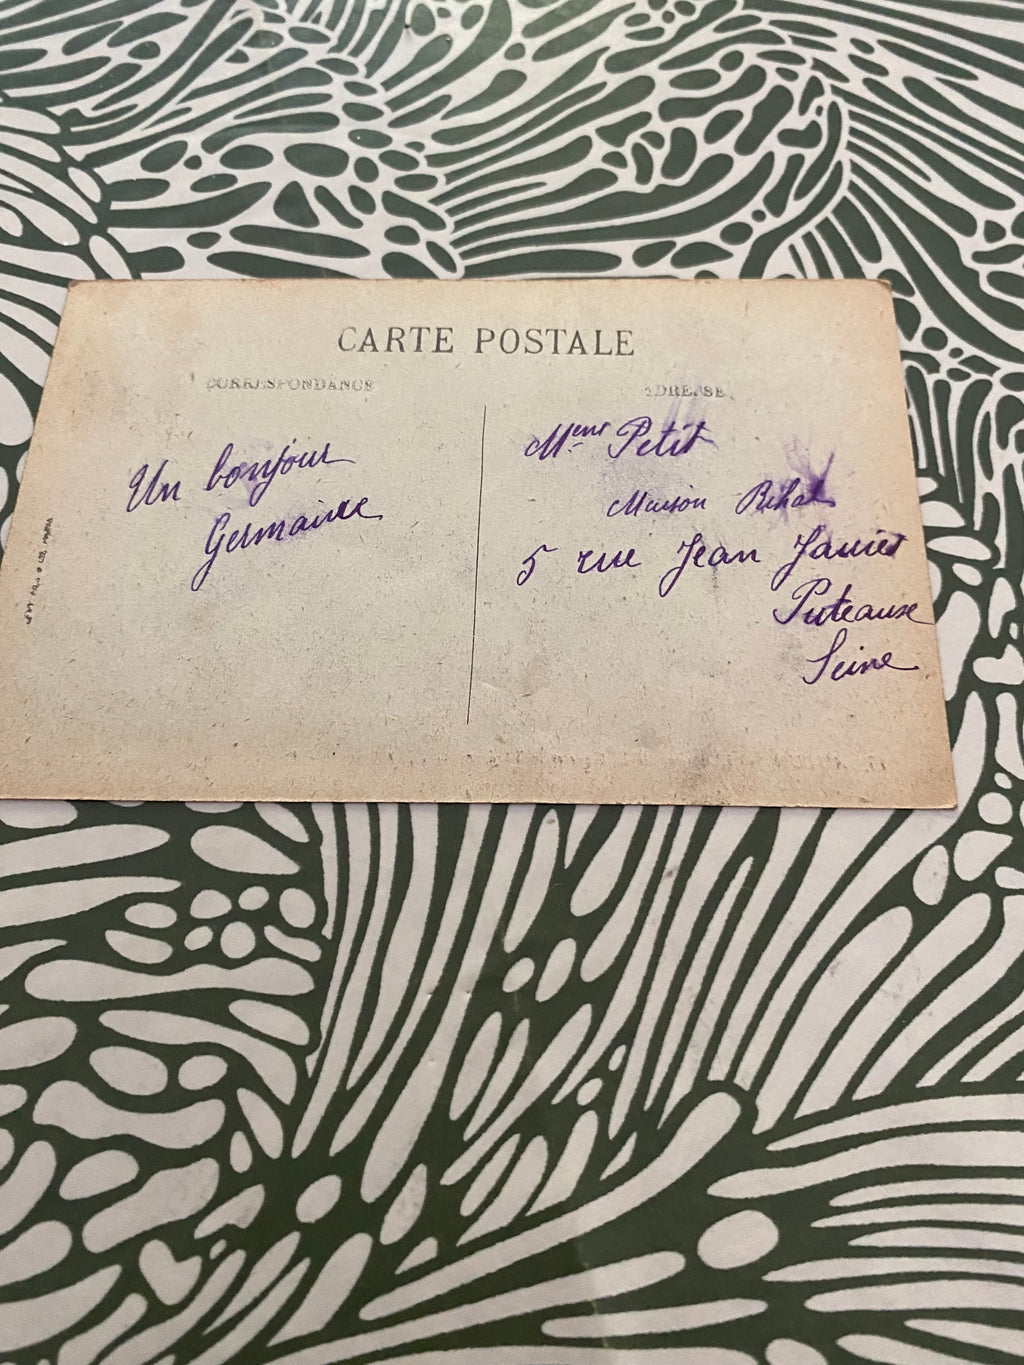 CARTE POSTALE
CORRESPONDANCE
ADRESSE
Un bonjour
Germaine
Petit
Maison
5 rue Jean
Puteaux
Seine